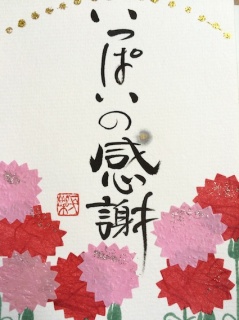 いっぱいの感謝